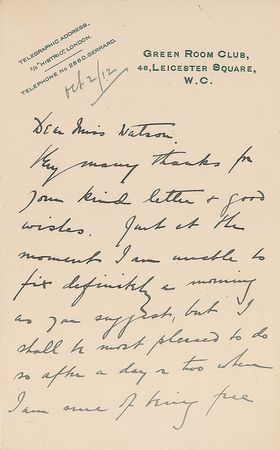 TELEGRAPHIC ADDRESS,
c/o "HISTRIO, LONDON.
TELEPHONE No 2880, GERRARD.
Oct 2/12
GREEN ROOM CLUB,
46, LEICESTER SQUARE,
W.C.
Dear Miss Watson.
Very many thanks for
your kind letter & good
wishes. Just at the
moment I am unable to
fix definitely a morning
as you suggest, but I
shall be most pleased to do
so after a day or two when
I am sure of being free